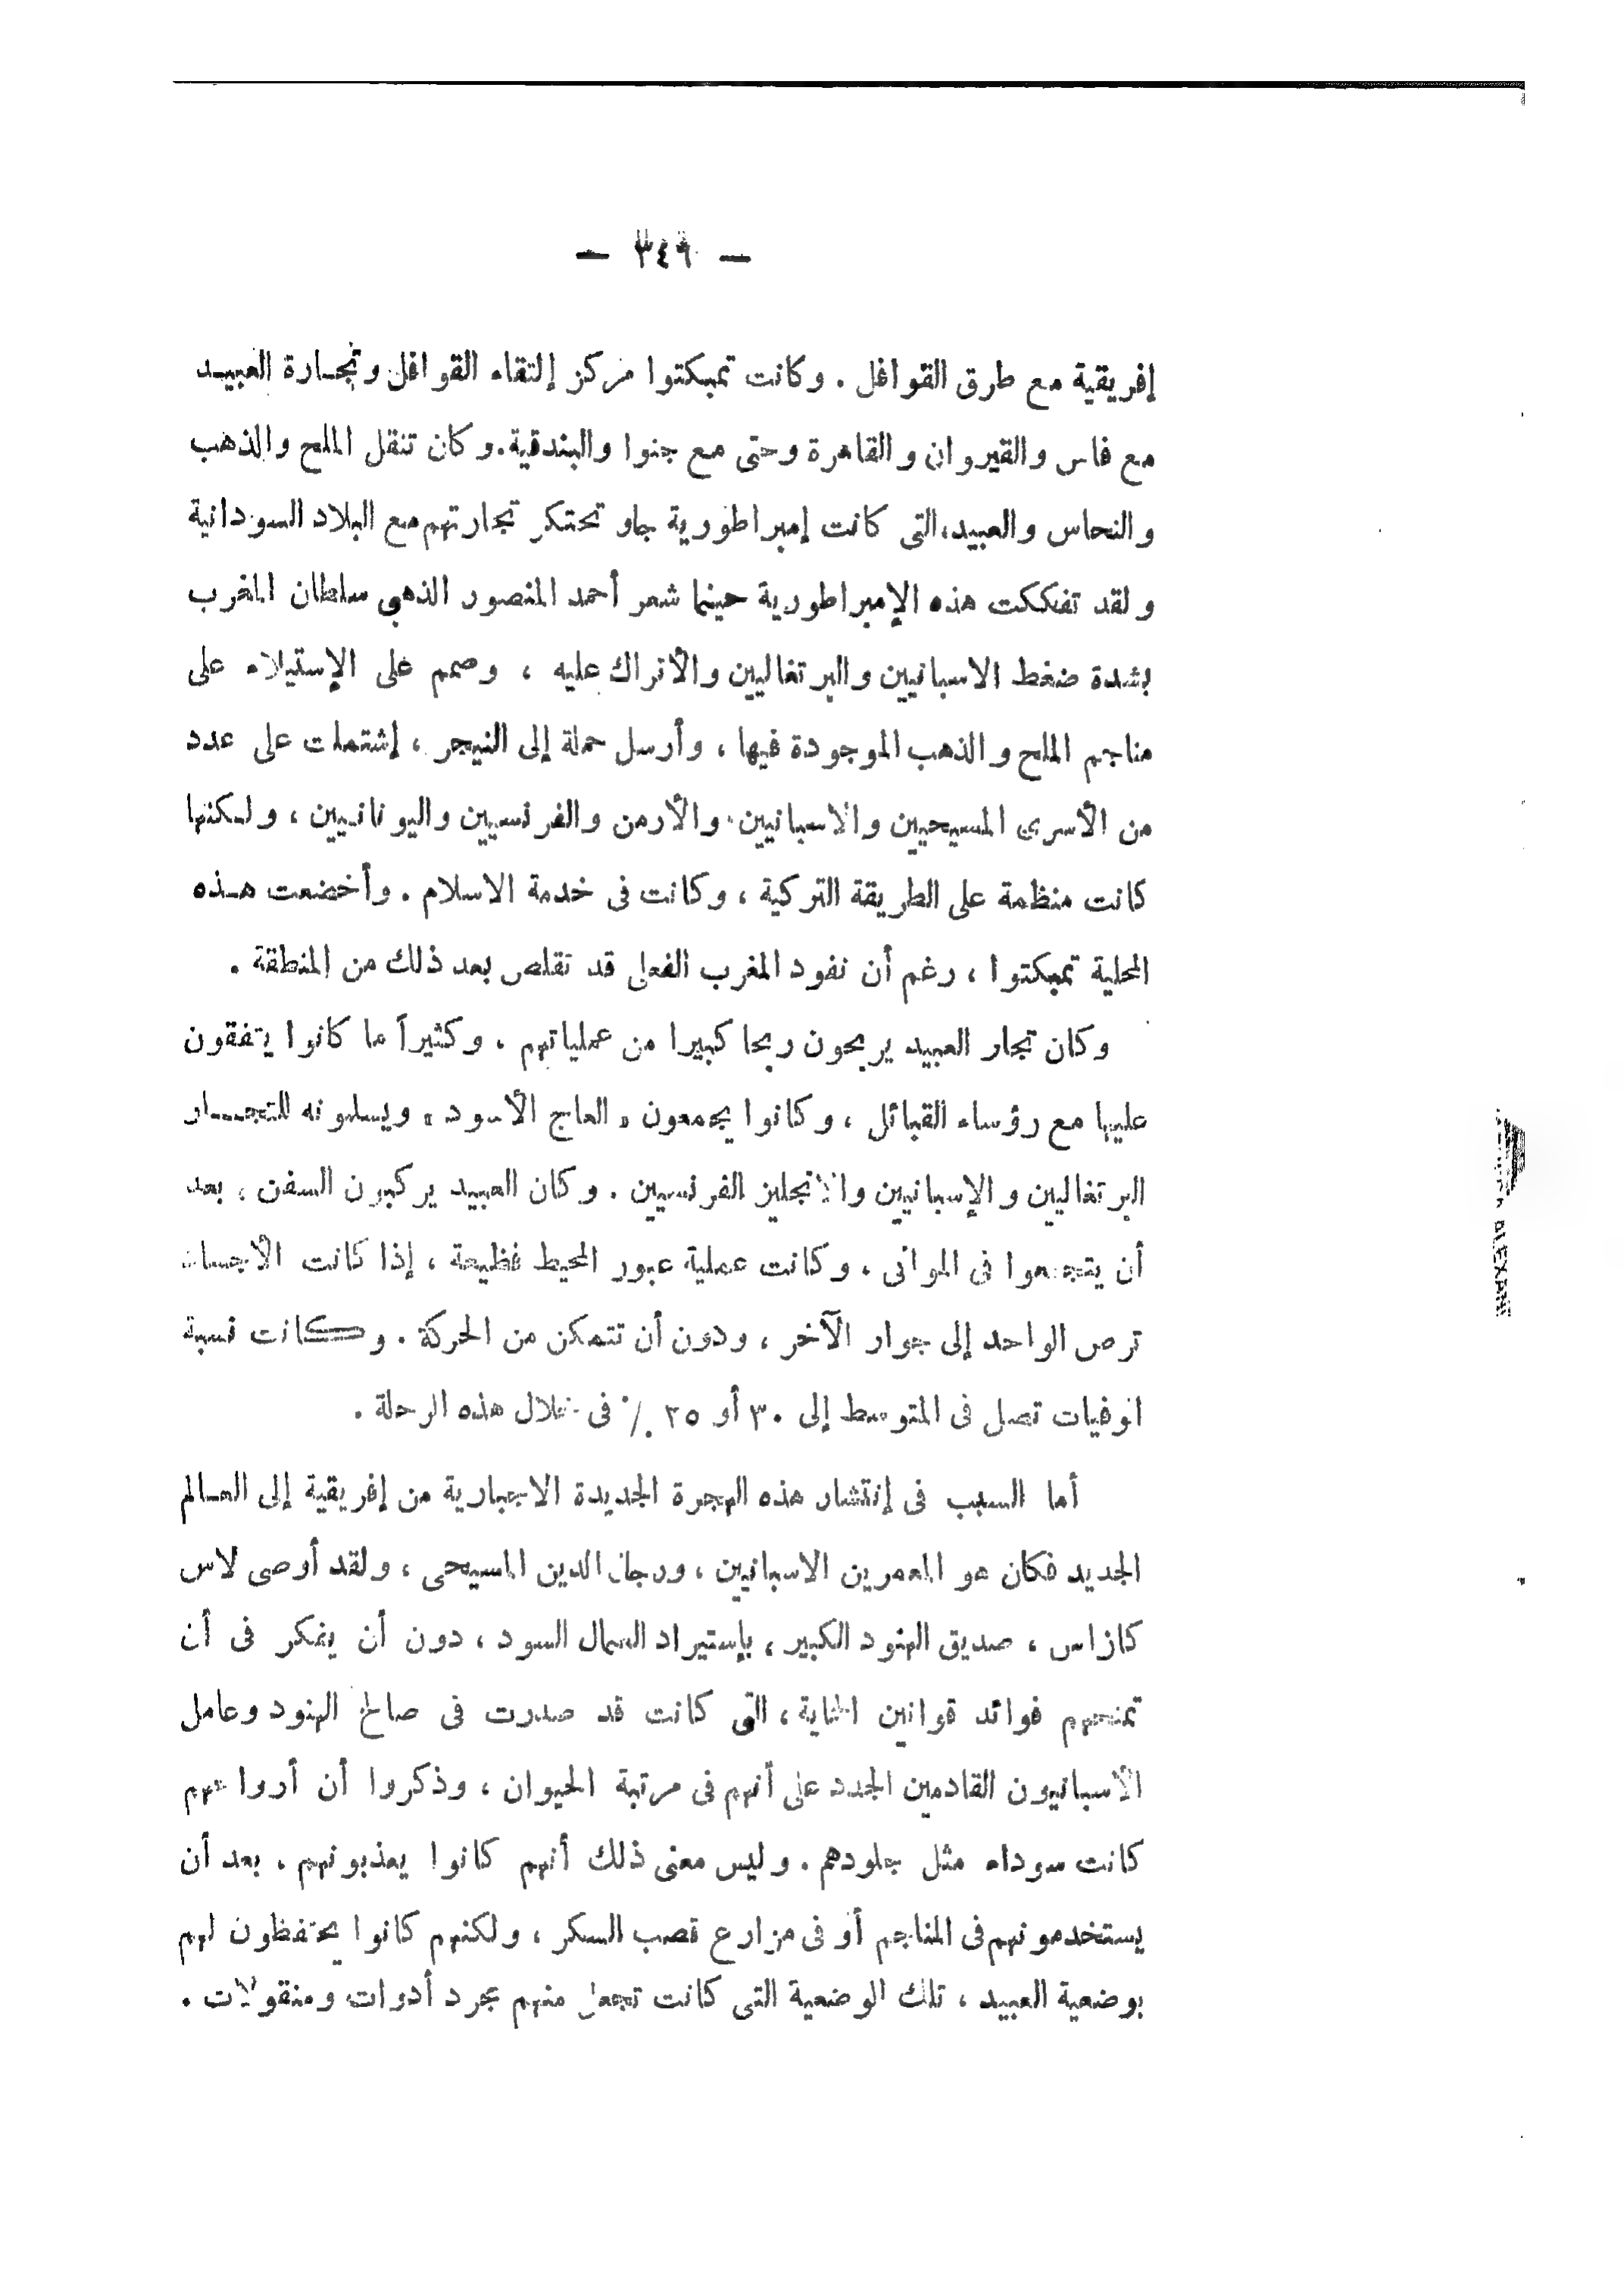 — ٣٤٩ —
إفريقية مع طرق القوافل . وكانت تمبكتوا مركز إلتقاء القوافل وتجارة العبيد
مع فاس والقيروان والقاهرة وحتى مع جنوا والبندقية. وكان تنقل الملح والذهب
والنحاس والعبيد، التى كانت إمبراطورية جاو تحتكر تجارتهم مع البلاد السودانية
ولقد تفككت هذه الإمبراطورية حينما شعر أحمد المنصور الذهبى سلطان المغرب
بشدة ضغط الاسبانيين والبرتغاليين والأتراك عليه ، وصمم على الإستيلاء على
مناجم الملح والذهب الموجودة فيها ، وأرسل حملة إلى النيجر ، إشتملت على عدد
من الأسرى المسيحيين والاسبانيين والأرمن والفرنسيين واليونانيين ، ولكنها
كانت منظمة على الطريقة التركية ، وكانت فى خدمة الاسلام . وأخضعت هذه
المحلية تمبكتوا ، رغم أن نفود المغرب الفعلى قد تقلص بعد ذلك من المنطقة .
وكان تجار العبيد يربحون ربحا كبيرا من عملياتهم ، وكثيراً ما كانوا يتفقون
عليها مع رؤساء القبائل ، وكانوا يجمعون « العاج الأسود » ويسلمونه للتجار
البرتغاليين والإسبانيين والانجليز الفرنسيين . وكان العبيد يركبون السفن ، بعد
أن يتجمعوا فى الموانى ، وكانت عملية عبور المحيط فظيعة ، إذا كانت الأجساد
ترص الواحد إلى جوار الآخر ، ودون أن تتمكن من الحركة . وكانت نسبة
الوفيات تصل فى المتوسط إلى ٣٠ أو ٣٥ ٪ فى خلال هذه الرحلة .
أما السبب فى إنتشار هذه الهجرة الجديدة الاجبارية من إفريقية إلى العالم
الجديد فكان هو المعمرين الاسبانيين ، ورجال الدين المسيحى ، ولقد أوصى لاس
كازاس ، صديق الهنود الكبير ، بإستيراد العمال السود ، دون أن يفكر فى أن
تمنحهم فوائد قوانين الحماية ، التى كانت قد صدرت فى صالح الهنود وعامل
الأسبانيون القادمين الجدد على أنهم فى مرتبة الحيوان ، وذكروا أن أرواحهم
كانت سوداء مثل جلودهم . وليس معنى ذلك أنهم كانوا يعذبونهم ، بعد أن
يستخدمونهم فى المناجم أو فى مزارع قصب السكر ، ولكنهم كانوا يحتفظون لهم
بوضعية العبيد ، تلك الوضعية التى كانت تجعل منهم مجرد أدوات ومنقولات .